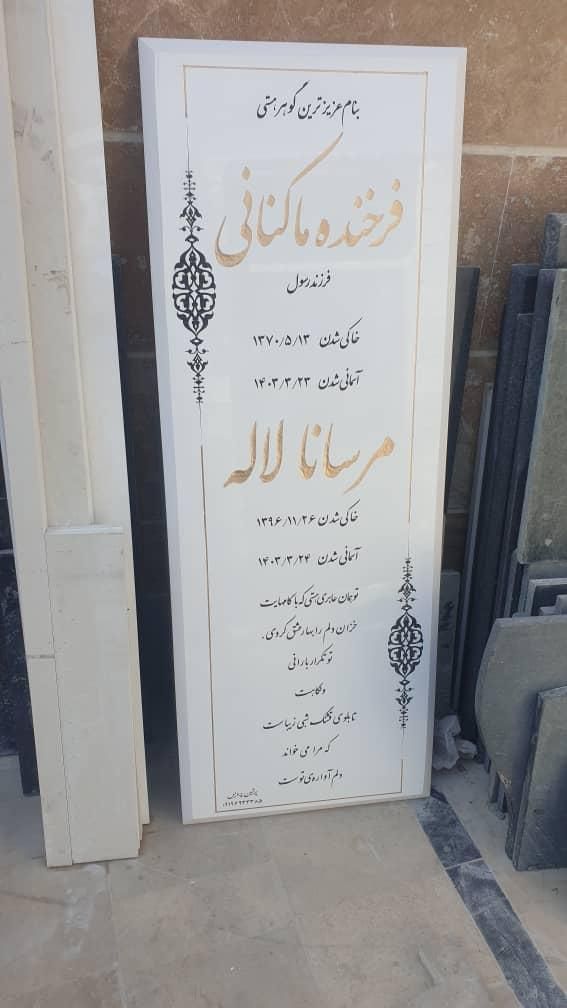 بنام عزیزترین گوهر هستی
فرخنده ماکنانی
فرزند رسول
خاکی شدن ۱۳۷۰/۵/۱۳
آسمانی شدن ۱۴۰۳/۳/۲۳
مرسانا لاله
خاکی شدن ۱۳۹۶/۱۱/۲۶
آسمانی شدن ۱۴۰۳/۳/۲۴
تو همان عابری هستی که با گامهایت
خزان دلم را بهار عشق کردی.
تو تکرار بارانی
و نگاهت
تابلوی قشنگ شبی زیباست
که مرا می خواند
دلم آواره ی توست
۰۹۱۹۶۹۳۳۳۸۵